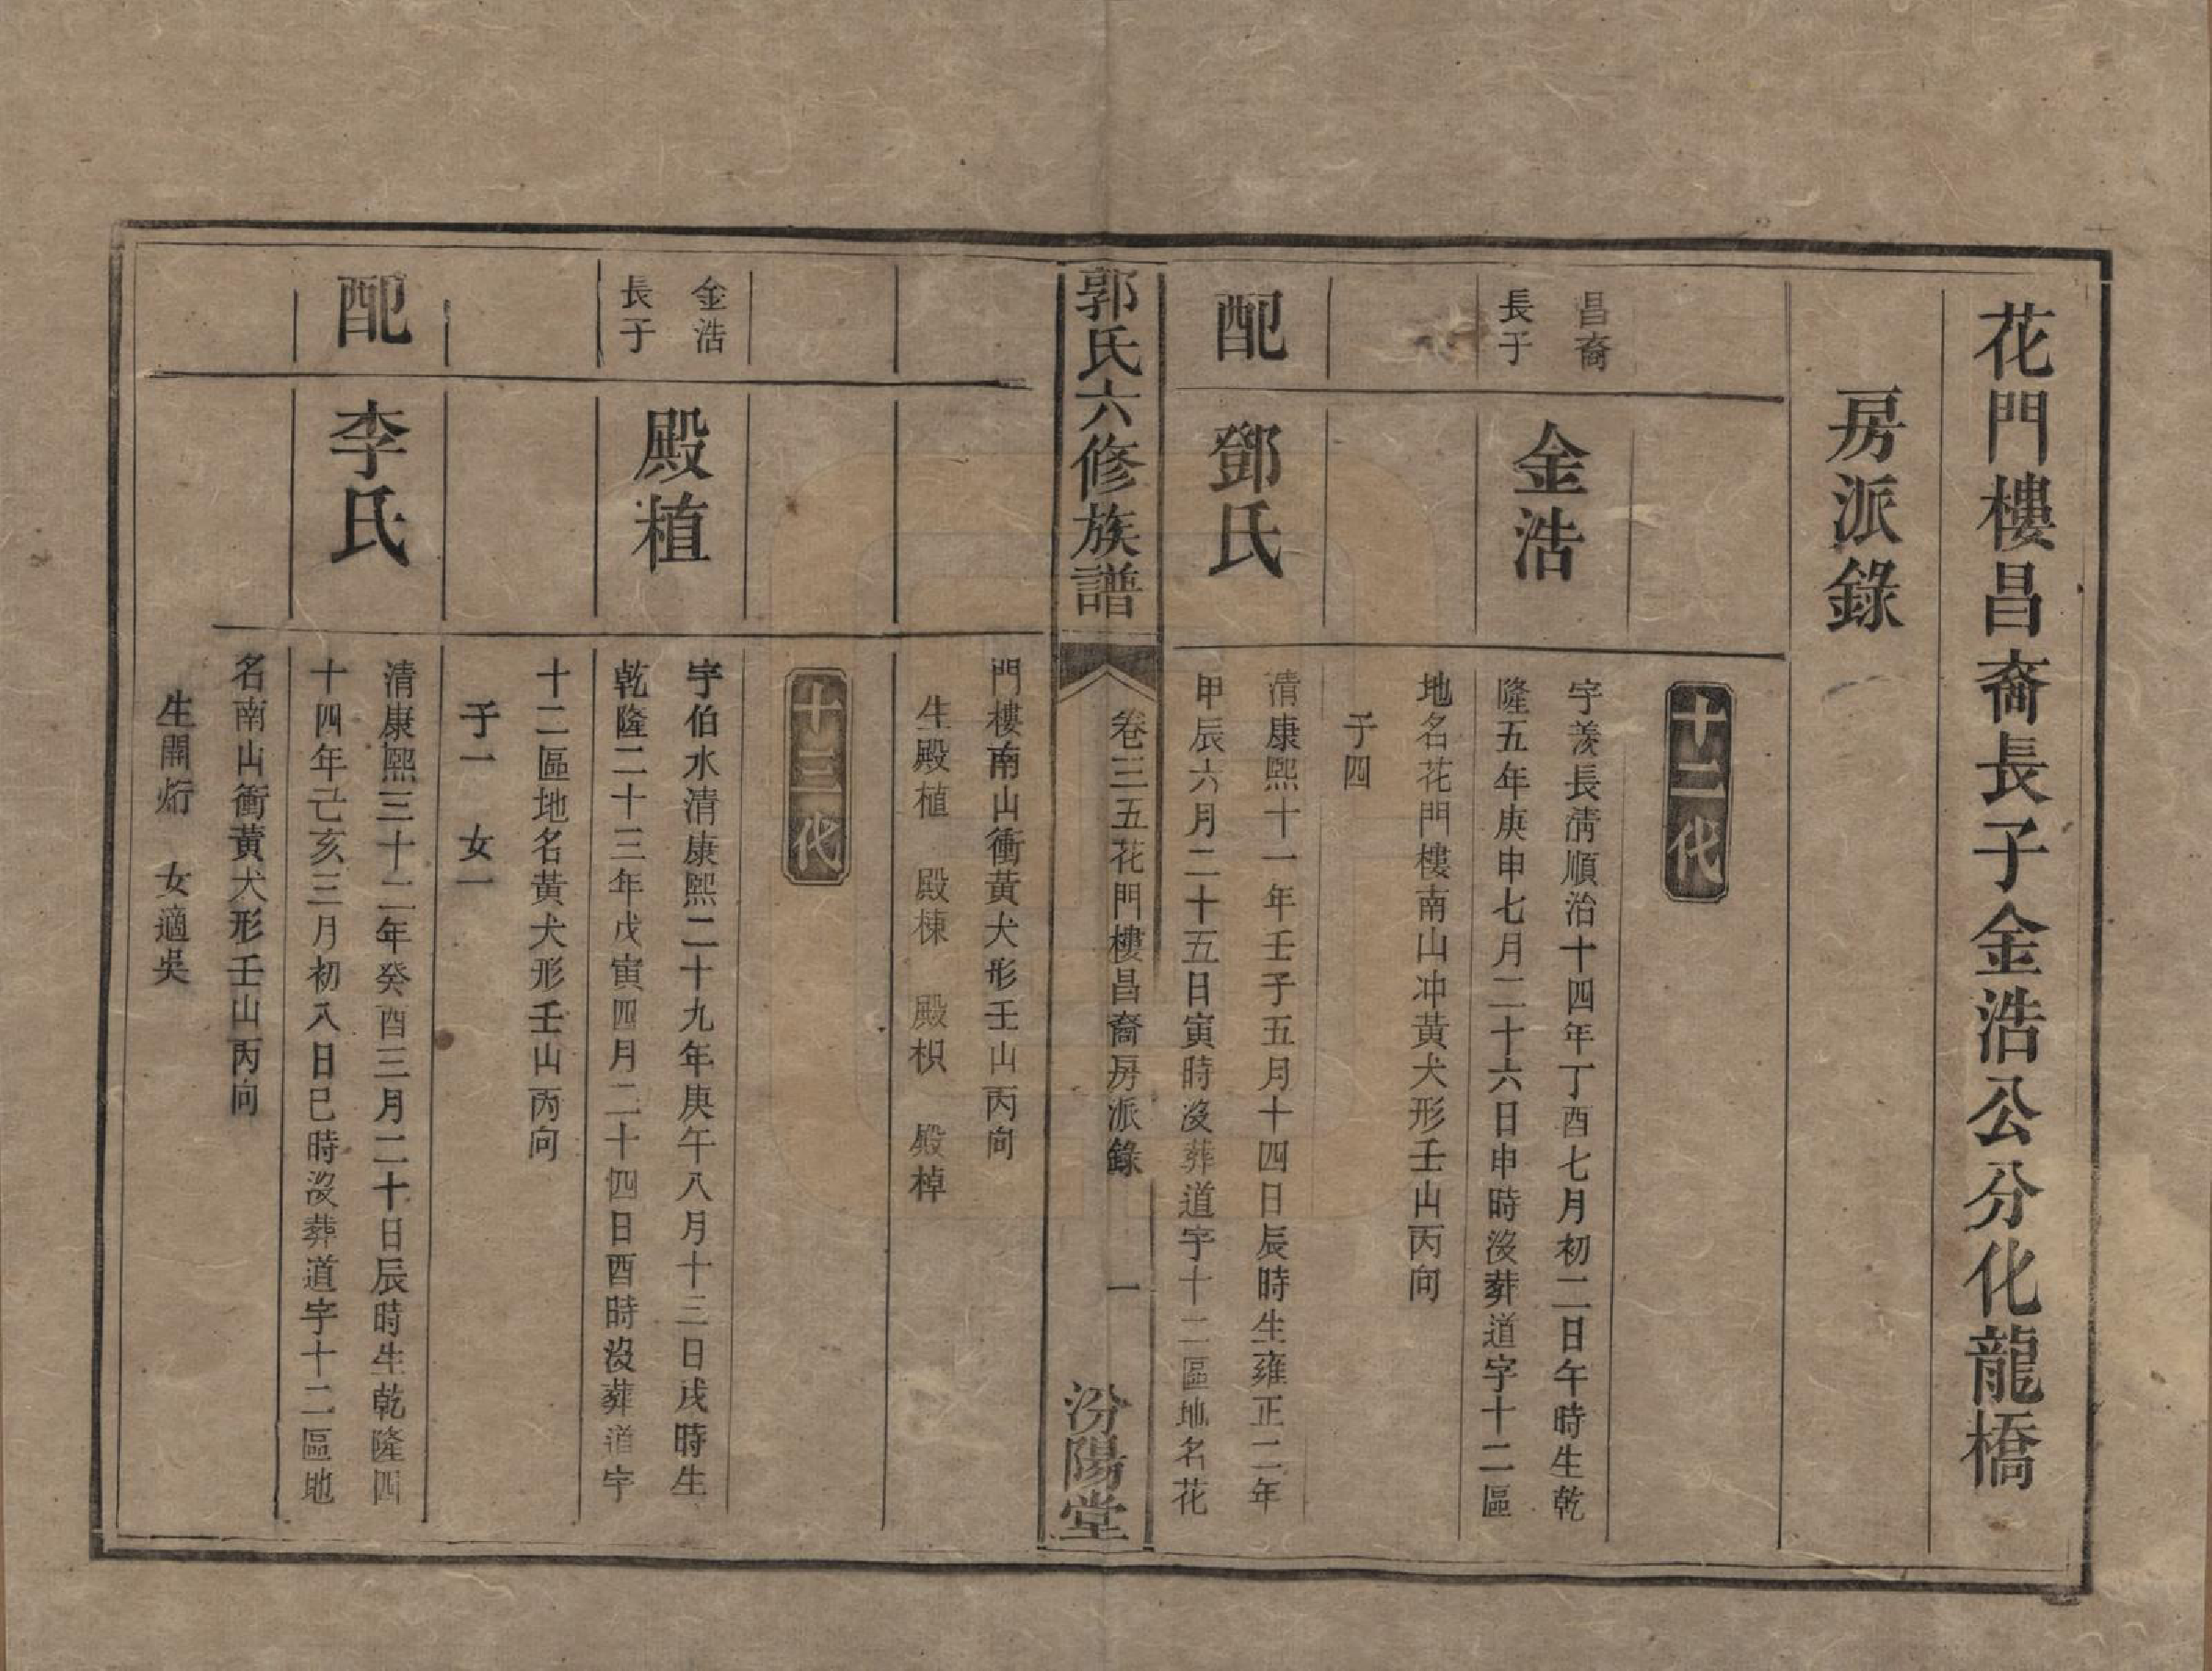 花門樓昌裔長子金浩公分化龍橋
房派錄
十二代
昌裔
長子
金浩
字羨長清順治十四年丁酉七月初二日午時生乾
隆五年庚申七月二十六日申時沒葬道字十二區
地名花門樓南山冲黃犬形壬山丙向
子四
配
鄧氏
清康熙十一年壬子五月十四日辰時生雍正二年
甲辰六月二十五日寅時沒葬道字十二區地名花
郭氏六修族譜
卷三五花門樓昌裔房派錄
一
汾陽堂
門樓南山衝黃犬形壬山丙向
生殿植 殿棟 殿枳 殿棹
十三代
金浩
長子
殿植
字伯水清康熙二十九年庚午八月十三日戌時生
乾隆二十三年戊寅四月二十四日酉時沒葬道字
十二區地名黃犬形壬山丙向
子一 女一
配
李氏
清康熙三十二年癸酉三月二十日辰時生乾隆四
十四年己亥三月初入日巳時沒葬道字十二區地
名南山衝黃犬形壬山丙向
生開炘 女適吳